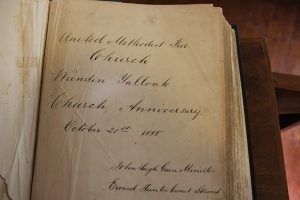 United Methodist Free
Church
Wanden Yallock
Church Anniversary
October 21st 1888
John Leigh Minister
Edward Hunter Steward